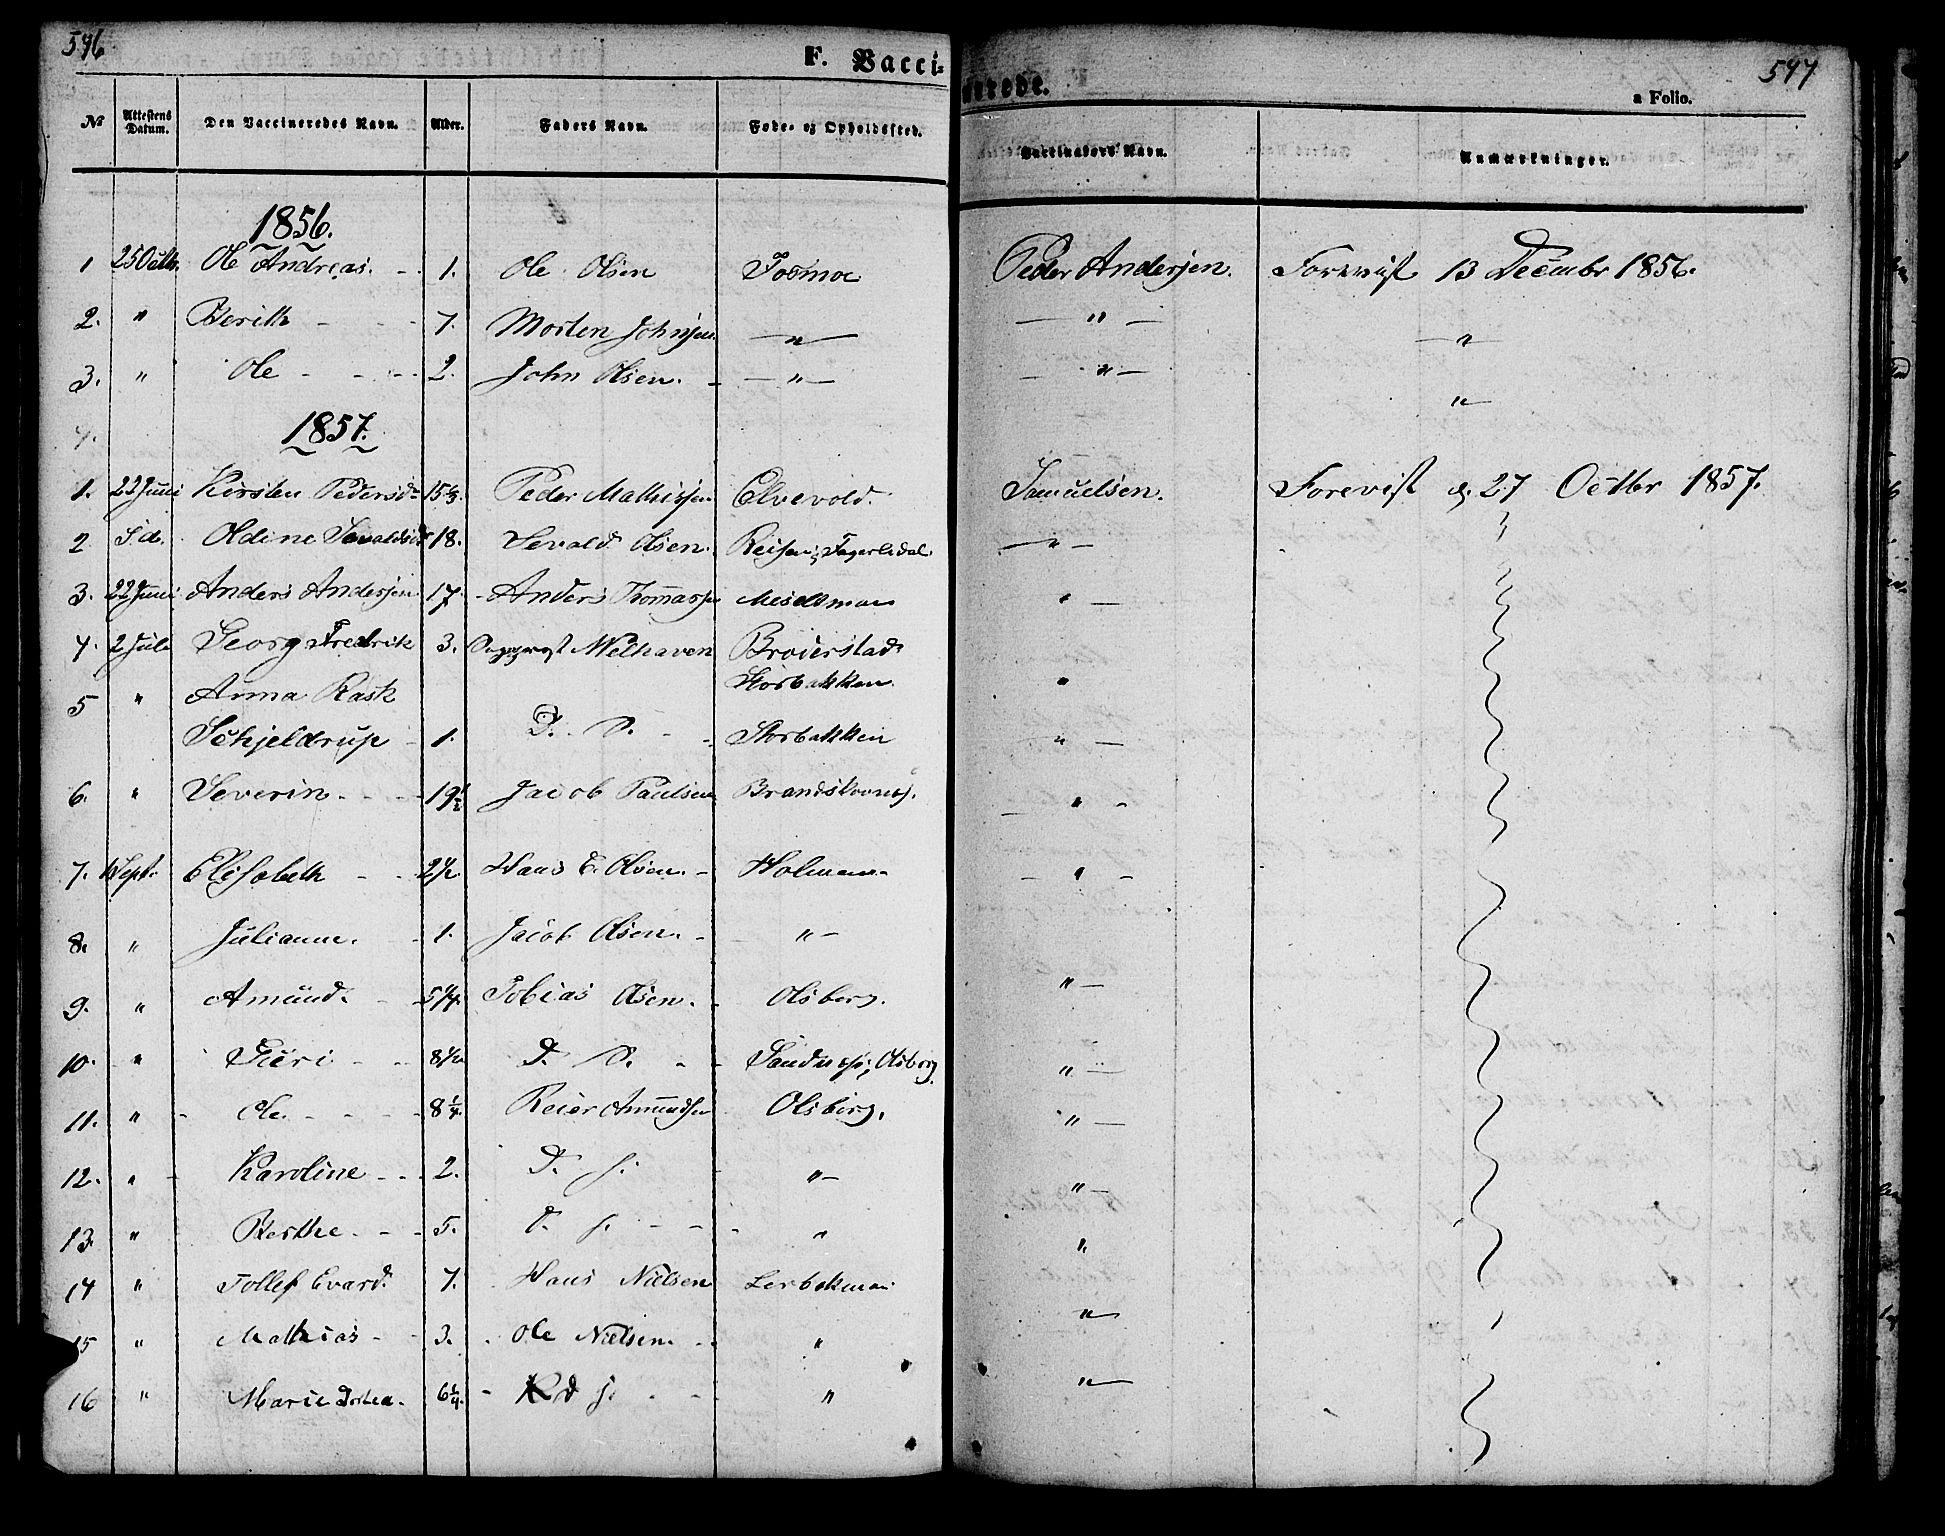 596
F. Vacci-
nerede.
a Folio.
597
№ Attestens Datum. Den Vaccineredes Navn. Alder. Faders Navn. Føde- og Opholdssted. Vaccinators Navn. Anmærkninger.
1856.
1 25 Octbr. Ole Andreas. - 1. Ole Olsen Fosmoe Peder Andersen. Forevist 13 Decembr 1856.
2. " Berith - - - 7. Morten Johnsen — " — — " — — " —
3. " Ole - - - 2. John Olsen. - — " — — " — "
4.
1857.
1. 22 Juni Kirsten Pedersd. 15 Peder Mathissen Elvevold. Samuelsen. Forevist d. 27 Octbr 1857.
2 S. d. Oldine Sevaldsd. 18. Sevald Olsen. Reisen, — " —
3. 22 Juni Anders Andersen 17. Anders Thomassen " —
4. 2 Juli Georg Fredrik 3. Welhaven Brøderstad Storbakken. "
5 " Anna Rask
Schjeldrup - 1. D. O. - - Storbakken " —
6. " Severin - - - 19½ Jacob Paulsen " -
7. Sept. Elisabeth - - 2½ Hans E. Olsen. - Holmen - " -
8. " Julianne. - 1. Jacob Olsen. - " -
9. " Amund. - 5¼. Tobias Olsen. - Olsborg. " —
10. " Siri - - 8½ D. O. - - Olsborg. " —
11. " Ole. - - - 8¼. Reier Amundsen Olsborg. " —
12. " Karoline - - 2. D. S. " — " —
13. " Berthe - - 5. D. S. - - - " "
14 " Tollef Evard. 7. Hans Nielsen "
15 " Mathias - - 3. Ole Nielsen. - " "
16 " Marie Dortea. 6¼. - D S. - - " "